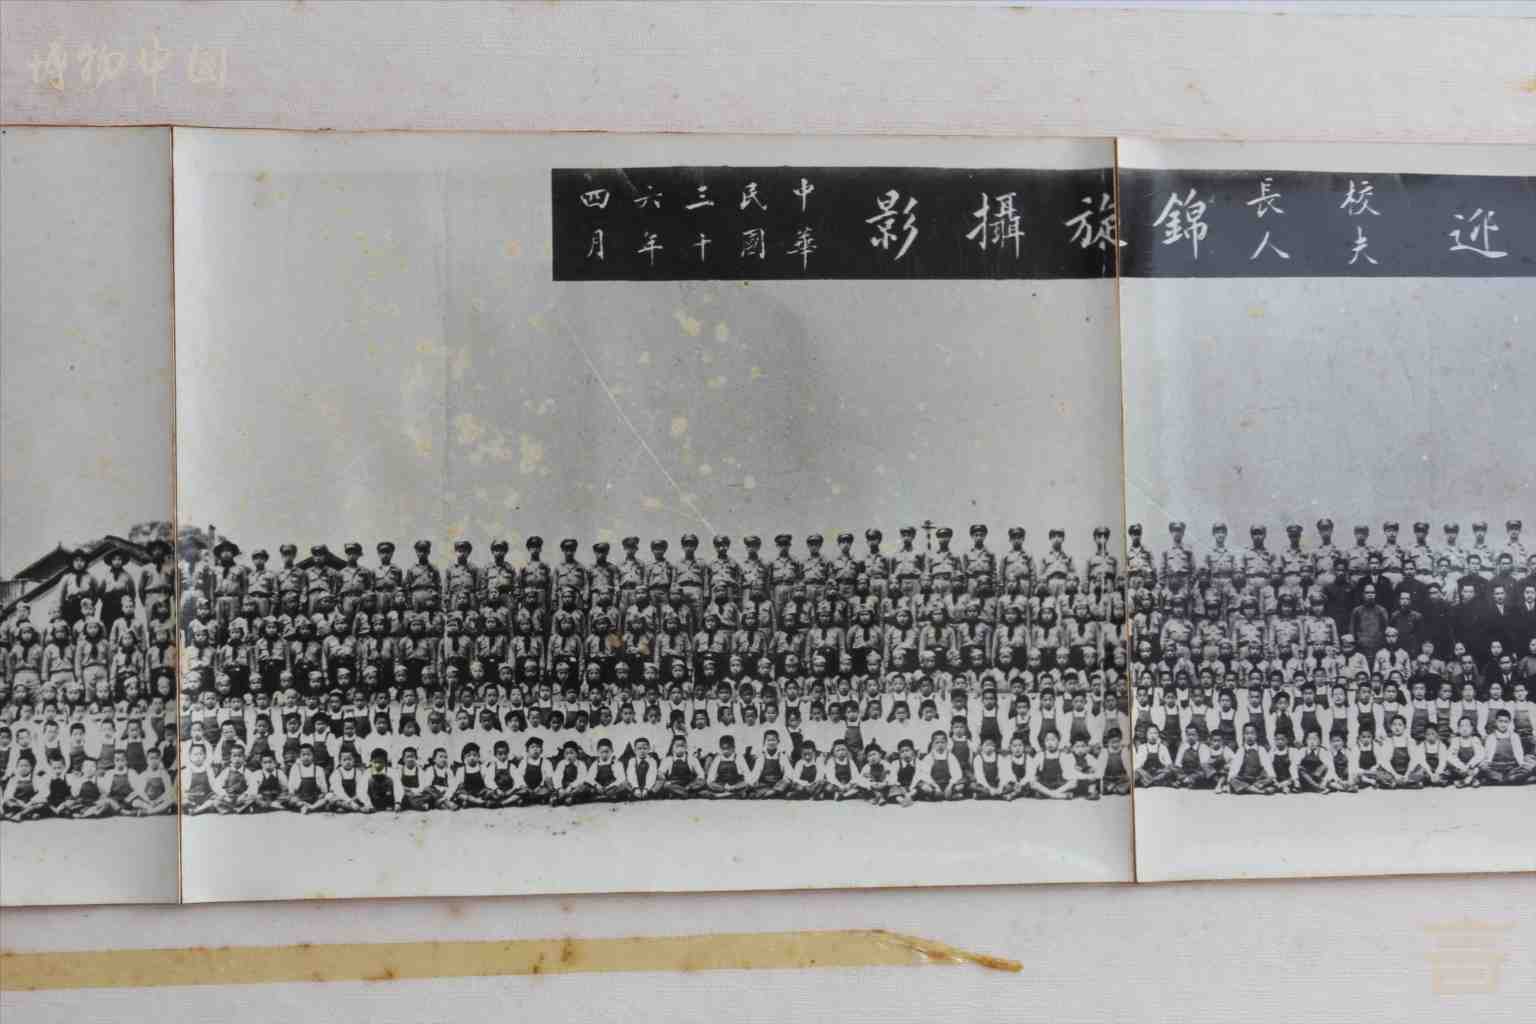 博物中国
迎
校長
夫人
錦旋攝影
中華
民國
三十
六年
四月